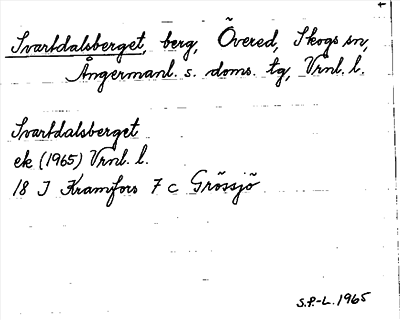 Svartdalsberget, berg, Övered, Skogs sn,
Ångermanl. s. doms. tg, Vrnl. l.
Svartdalsberget
ek (1965) Vrnl. l.
18 I Kramfors 7 c Grössjö
S.P.-L. 1965